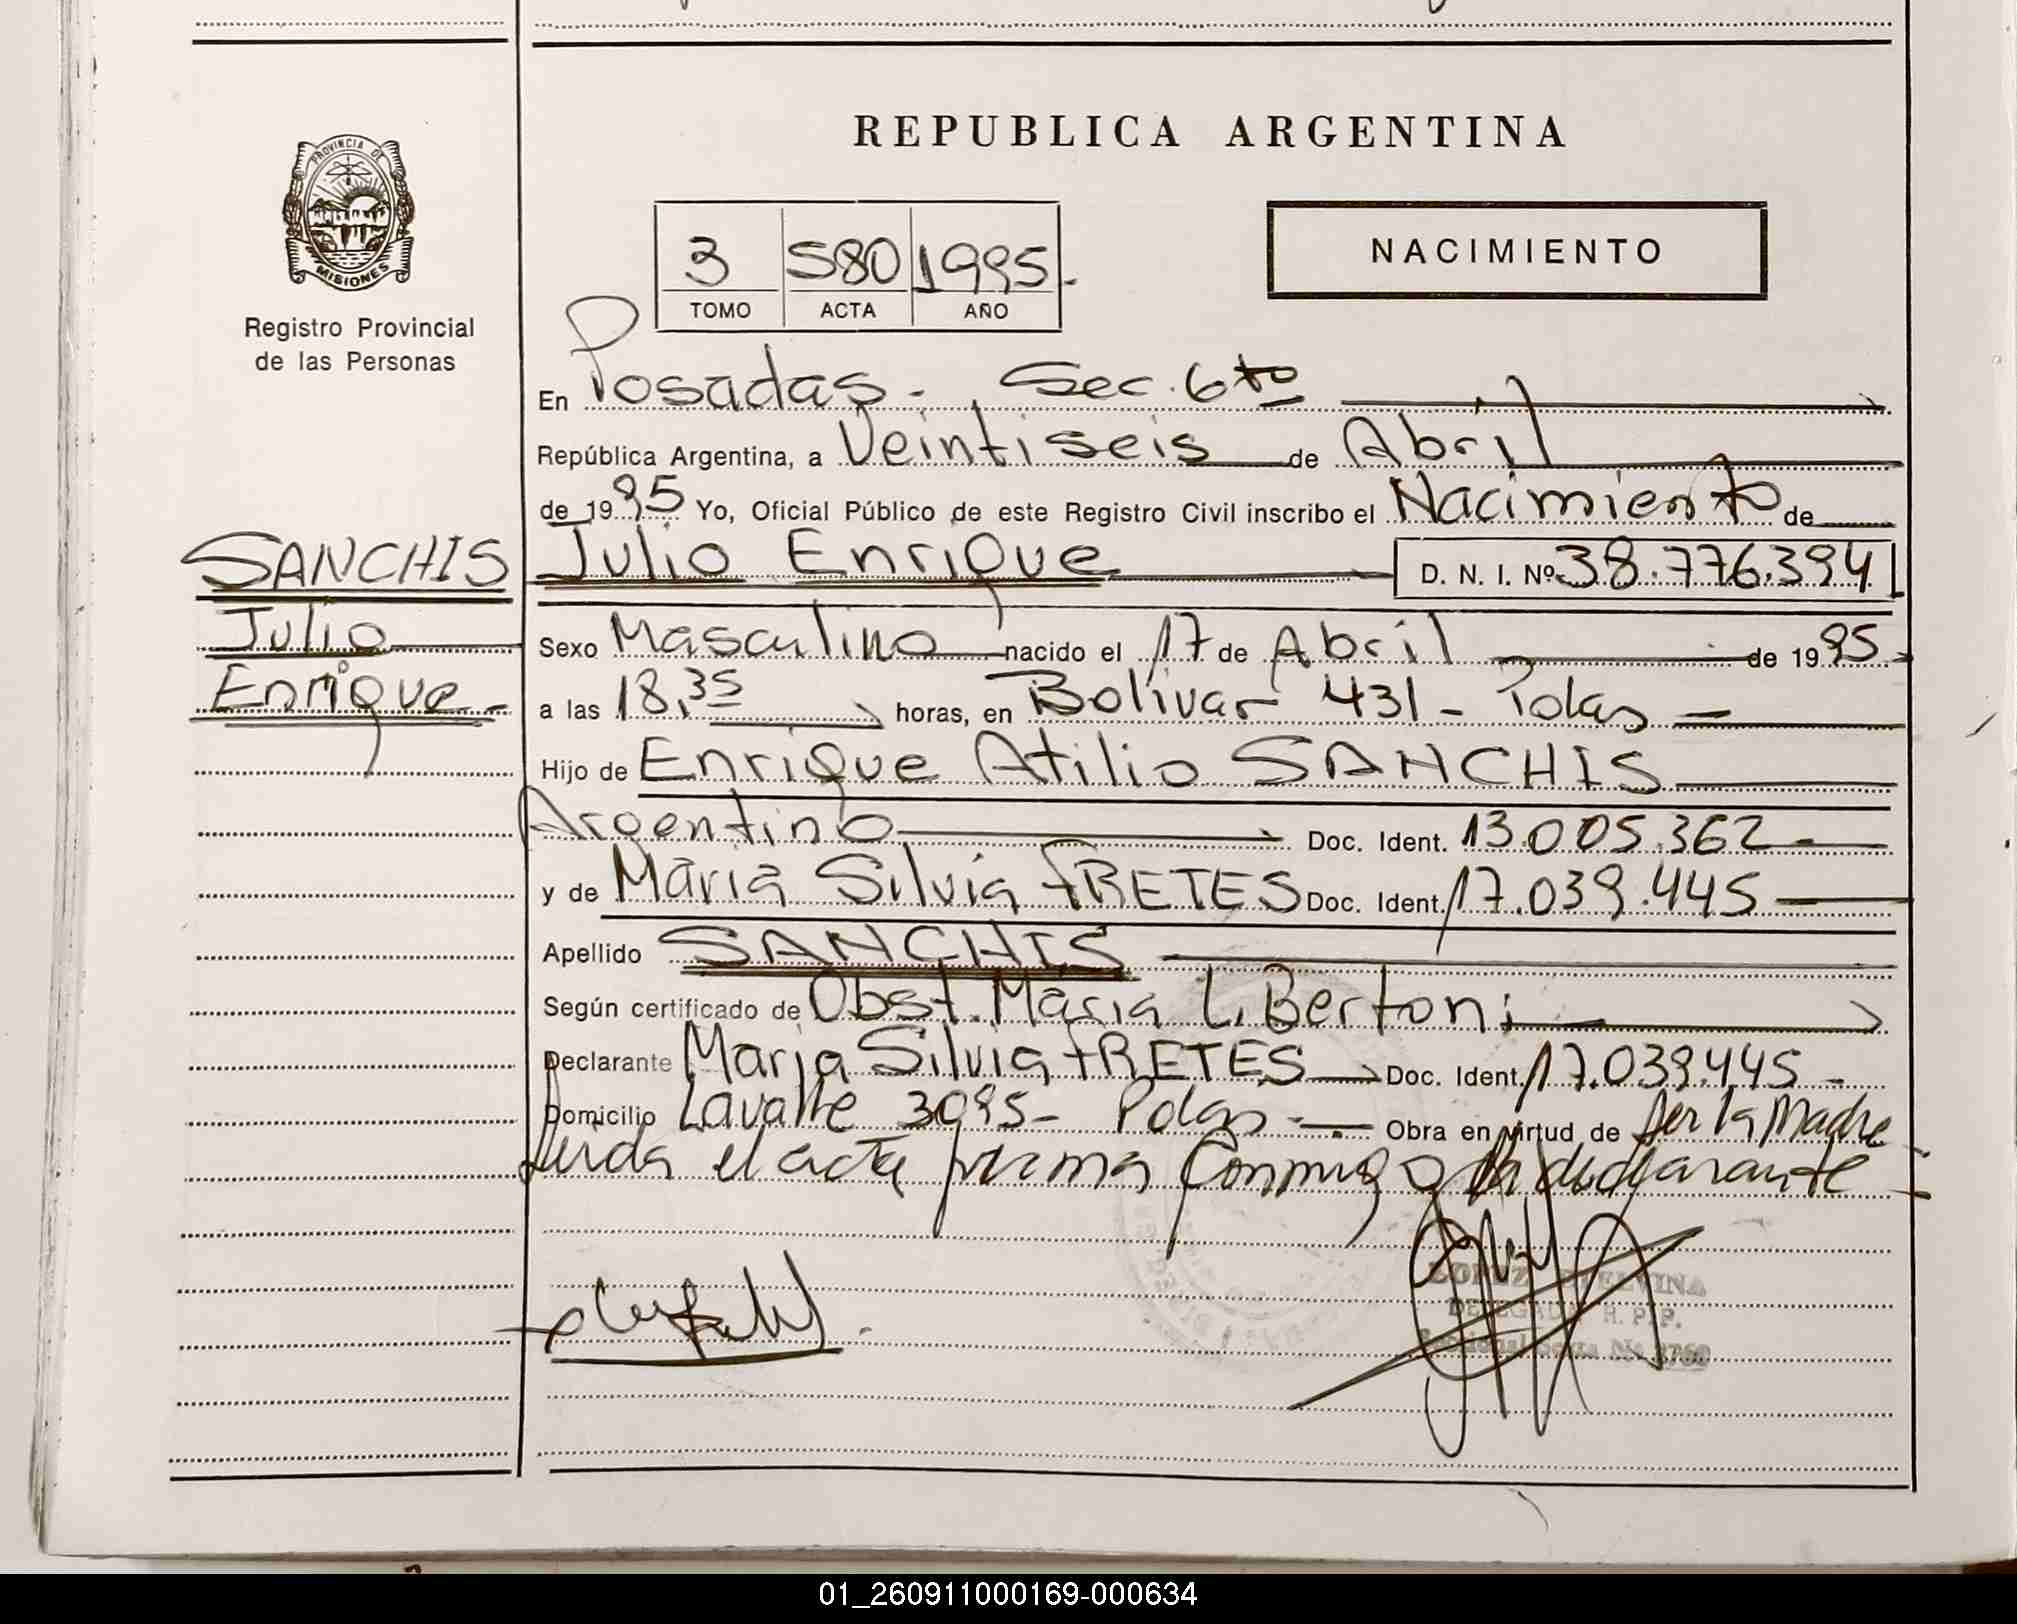 REPUBLICA ARGENTINA
PROVINCIA DE
MISIONES
Registro Provincial
de las Personas
NACIMIENTO
3 580 1995.
TOMO ACTA AÑO
En Posadas - Sec. 6to
República Argentina, a Veintiseis de Abril
de 1995 Yo, Oficial Público de este Registro Civil inscribo el Nacimiento de
SANCHIS
Julio
Enrique -
Julio Enrique D. N. I. Nº 38.776.394
Sexo Masculino nacido el 17 de Abril de 1995
a las 18,35 horas, en Bolivar 431 - Pdas -
Hijo de Enrique Atilio SANCHIS
Argentino Doc. Ident. 13.005.362 -
y de Maria Silvia FRETES Doc. Ident. 17.039.445
Apellido SANCHIS
Según certificado de Obst. Maria L. Bertoni
Declarante Maria Silvia FRETES Doc. Ident. 17.039.445 -
Domicilio Lavalle 3095 - Pdas - Obra en virtud de ser la Madre
Leida el acta firma conmigo la declarante
DELEGADA R. P. P.
01_260911000169-000634